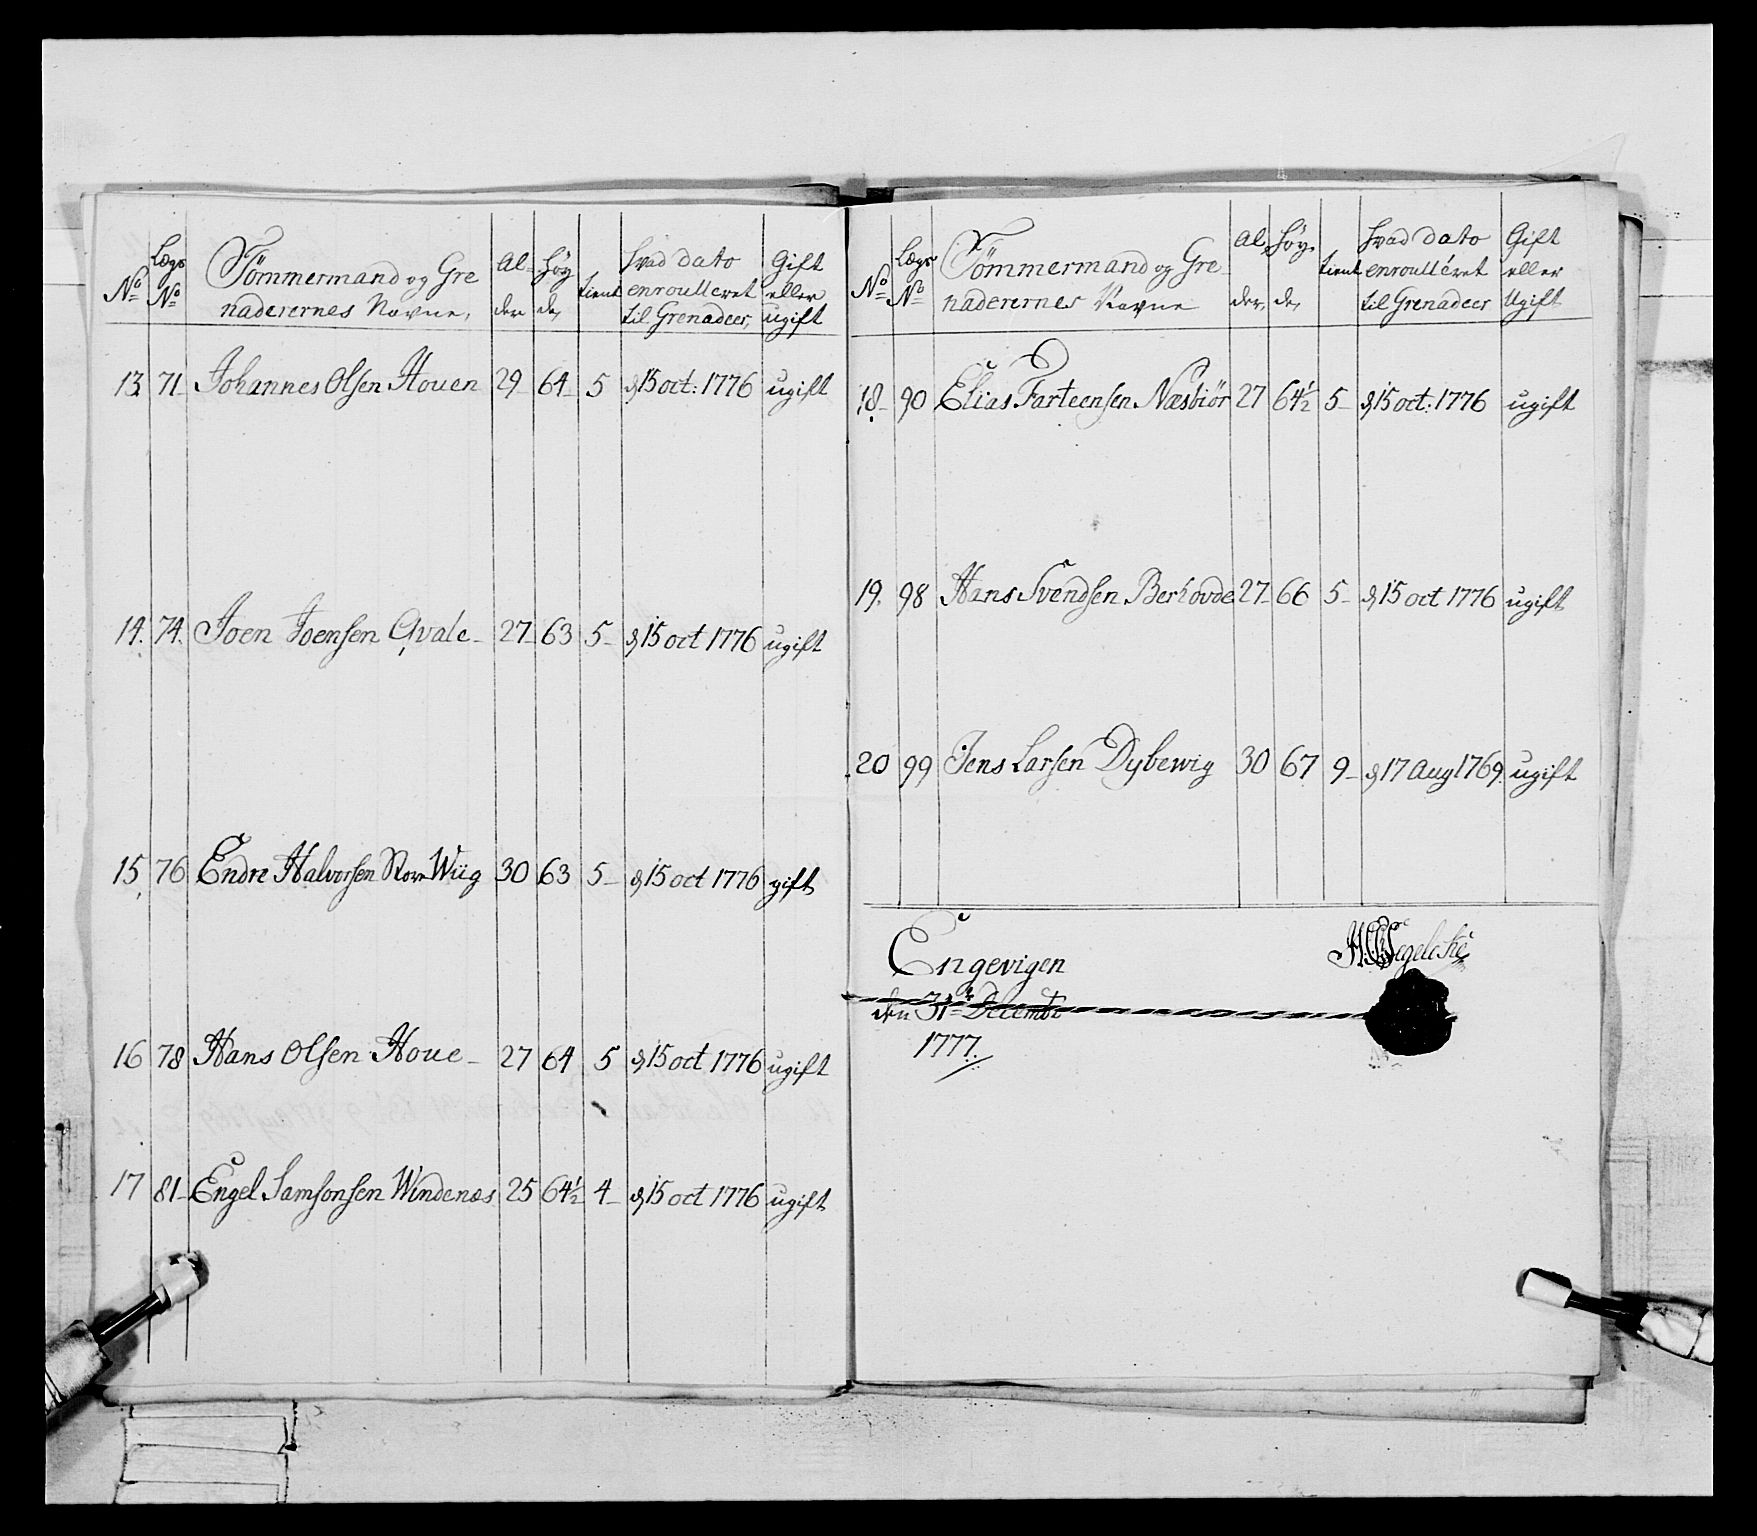 No
Lægs No
Tömmermand og Gre
naderernes Navne,
Al-
der
Høy
de,
tient
hvad dato
enroulleret
til Grenadeer,
Gift
eller
ugift
13. 71 Johannes Olsen Houen 29 64 5 d 15 oct: 1776 ugift
14. 74. Joen Joensen Qvale 27 63 5 d 15 oct 1776 ugift
15. 76 Endre Halvorsen Store Wiig 30 63 5 d 15 oct 1776 gift
16 78 Hans Olsen Houe 27 64 5 d 15 oct 1776 ugift
17 81 Engel Samsonsen Windenæs 25 64½ 4 d 15 oct 1776 ugift
No
Lægs No
Tömmermand og Gre
naderernes Navne
Al
der,
Høy
de,
tient
hvad dato
enroulleret
til Grenadeer
Gift
eller
Ugift
18. 90 Elias Farteensen Næsbiör 27 64½ 5 d 15 oct: 1776 ugift
19. 98 Hans Svendsen Berhovde 27 66 5 d 15 oct 1776 ugift
20 99 Jens Larsen Dybewig 30 67 9 d 17 Aug 1769. ugift
Engevigen
den 31te Decembr
1777.